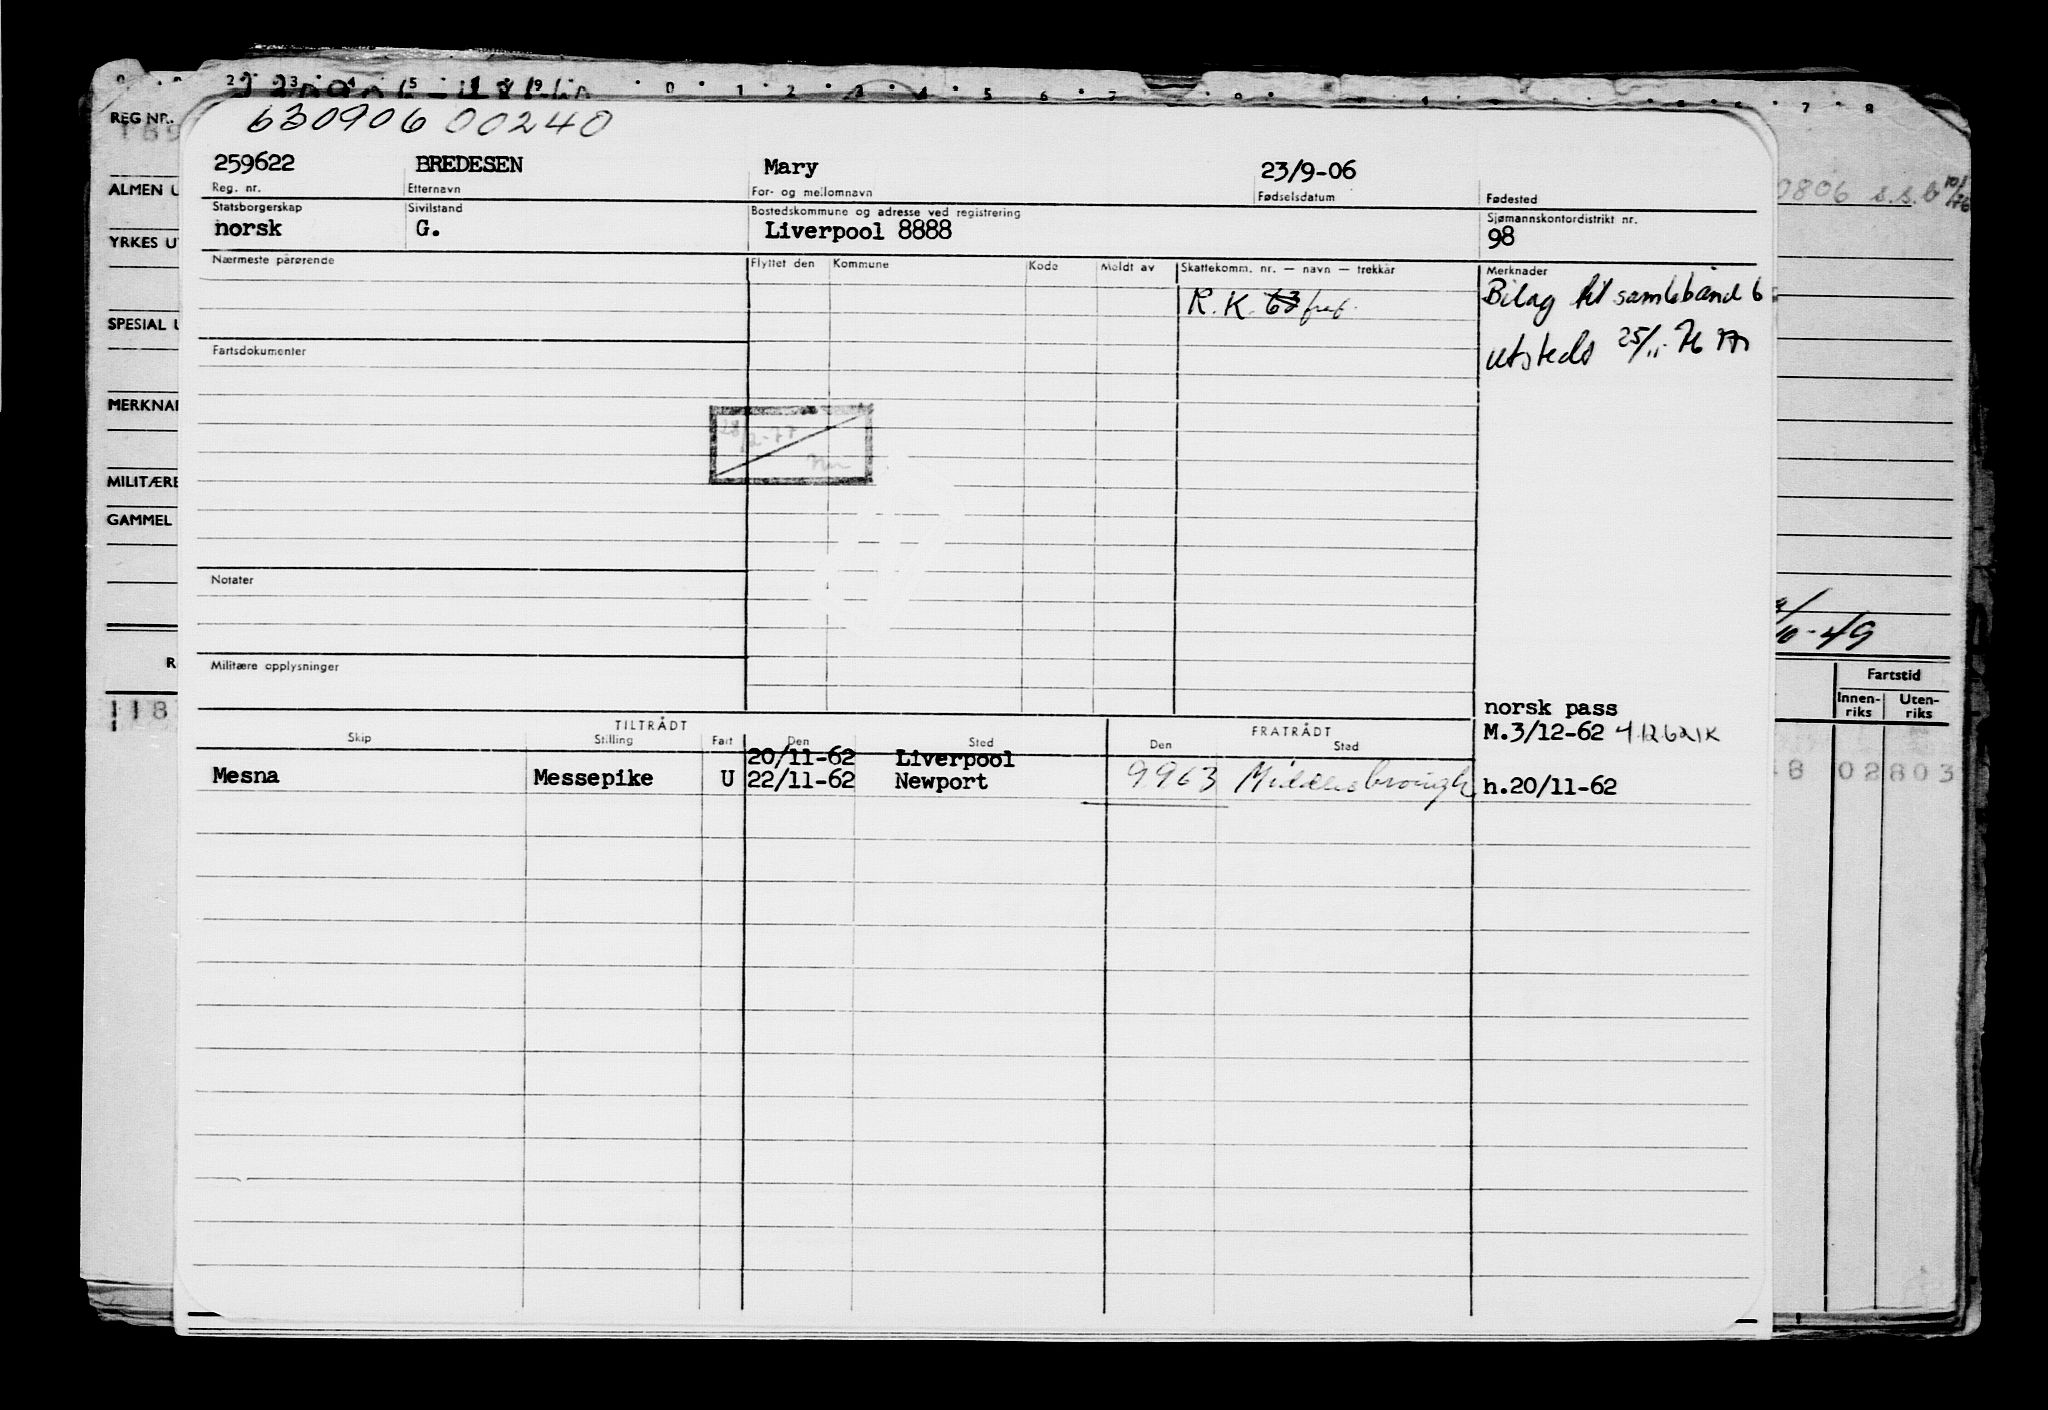 REG NR.
630906 00240
259622 BREDESEN Mary 23/9-06
Reg. nr. Etternavn For- og mellomnavn Fødselsdatum Fødested
ALMEN U
0806 s.s.b 10/76
Statsborgerskap Sivilstand Bostedskommune og adresse ved registrering Sjømannskontordistrikt nr.
norsk G. Liverpool 8888 98
YRKES U
Nærmeste pårørende Flyttet den Kommune Kode Meldt av Skattekomm. nr. — navn — trekkår Merknader
R. K. 63 Bilag til samlebånd 6
SPESIAL U
utsteds 25/11-76
Fartsdokumenter
MERKNA
28/2-77
MILITÆRE
GAMMEL
Notater
10-49
Militære opplysninger
Fartstid
Innen-riks Uten-riks
norsk pass
TILTRÅDT FRATRÅDT M.3/12-62
Skip Stilling Fart Den Sted Den Sted
20/11-62 Liverpool
Mesna Messepike U 22/11-62 Newport 9963 Middlesbrough h.20/11-62
8 02803
118